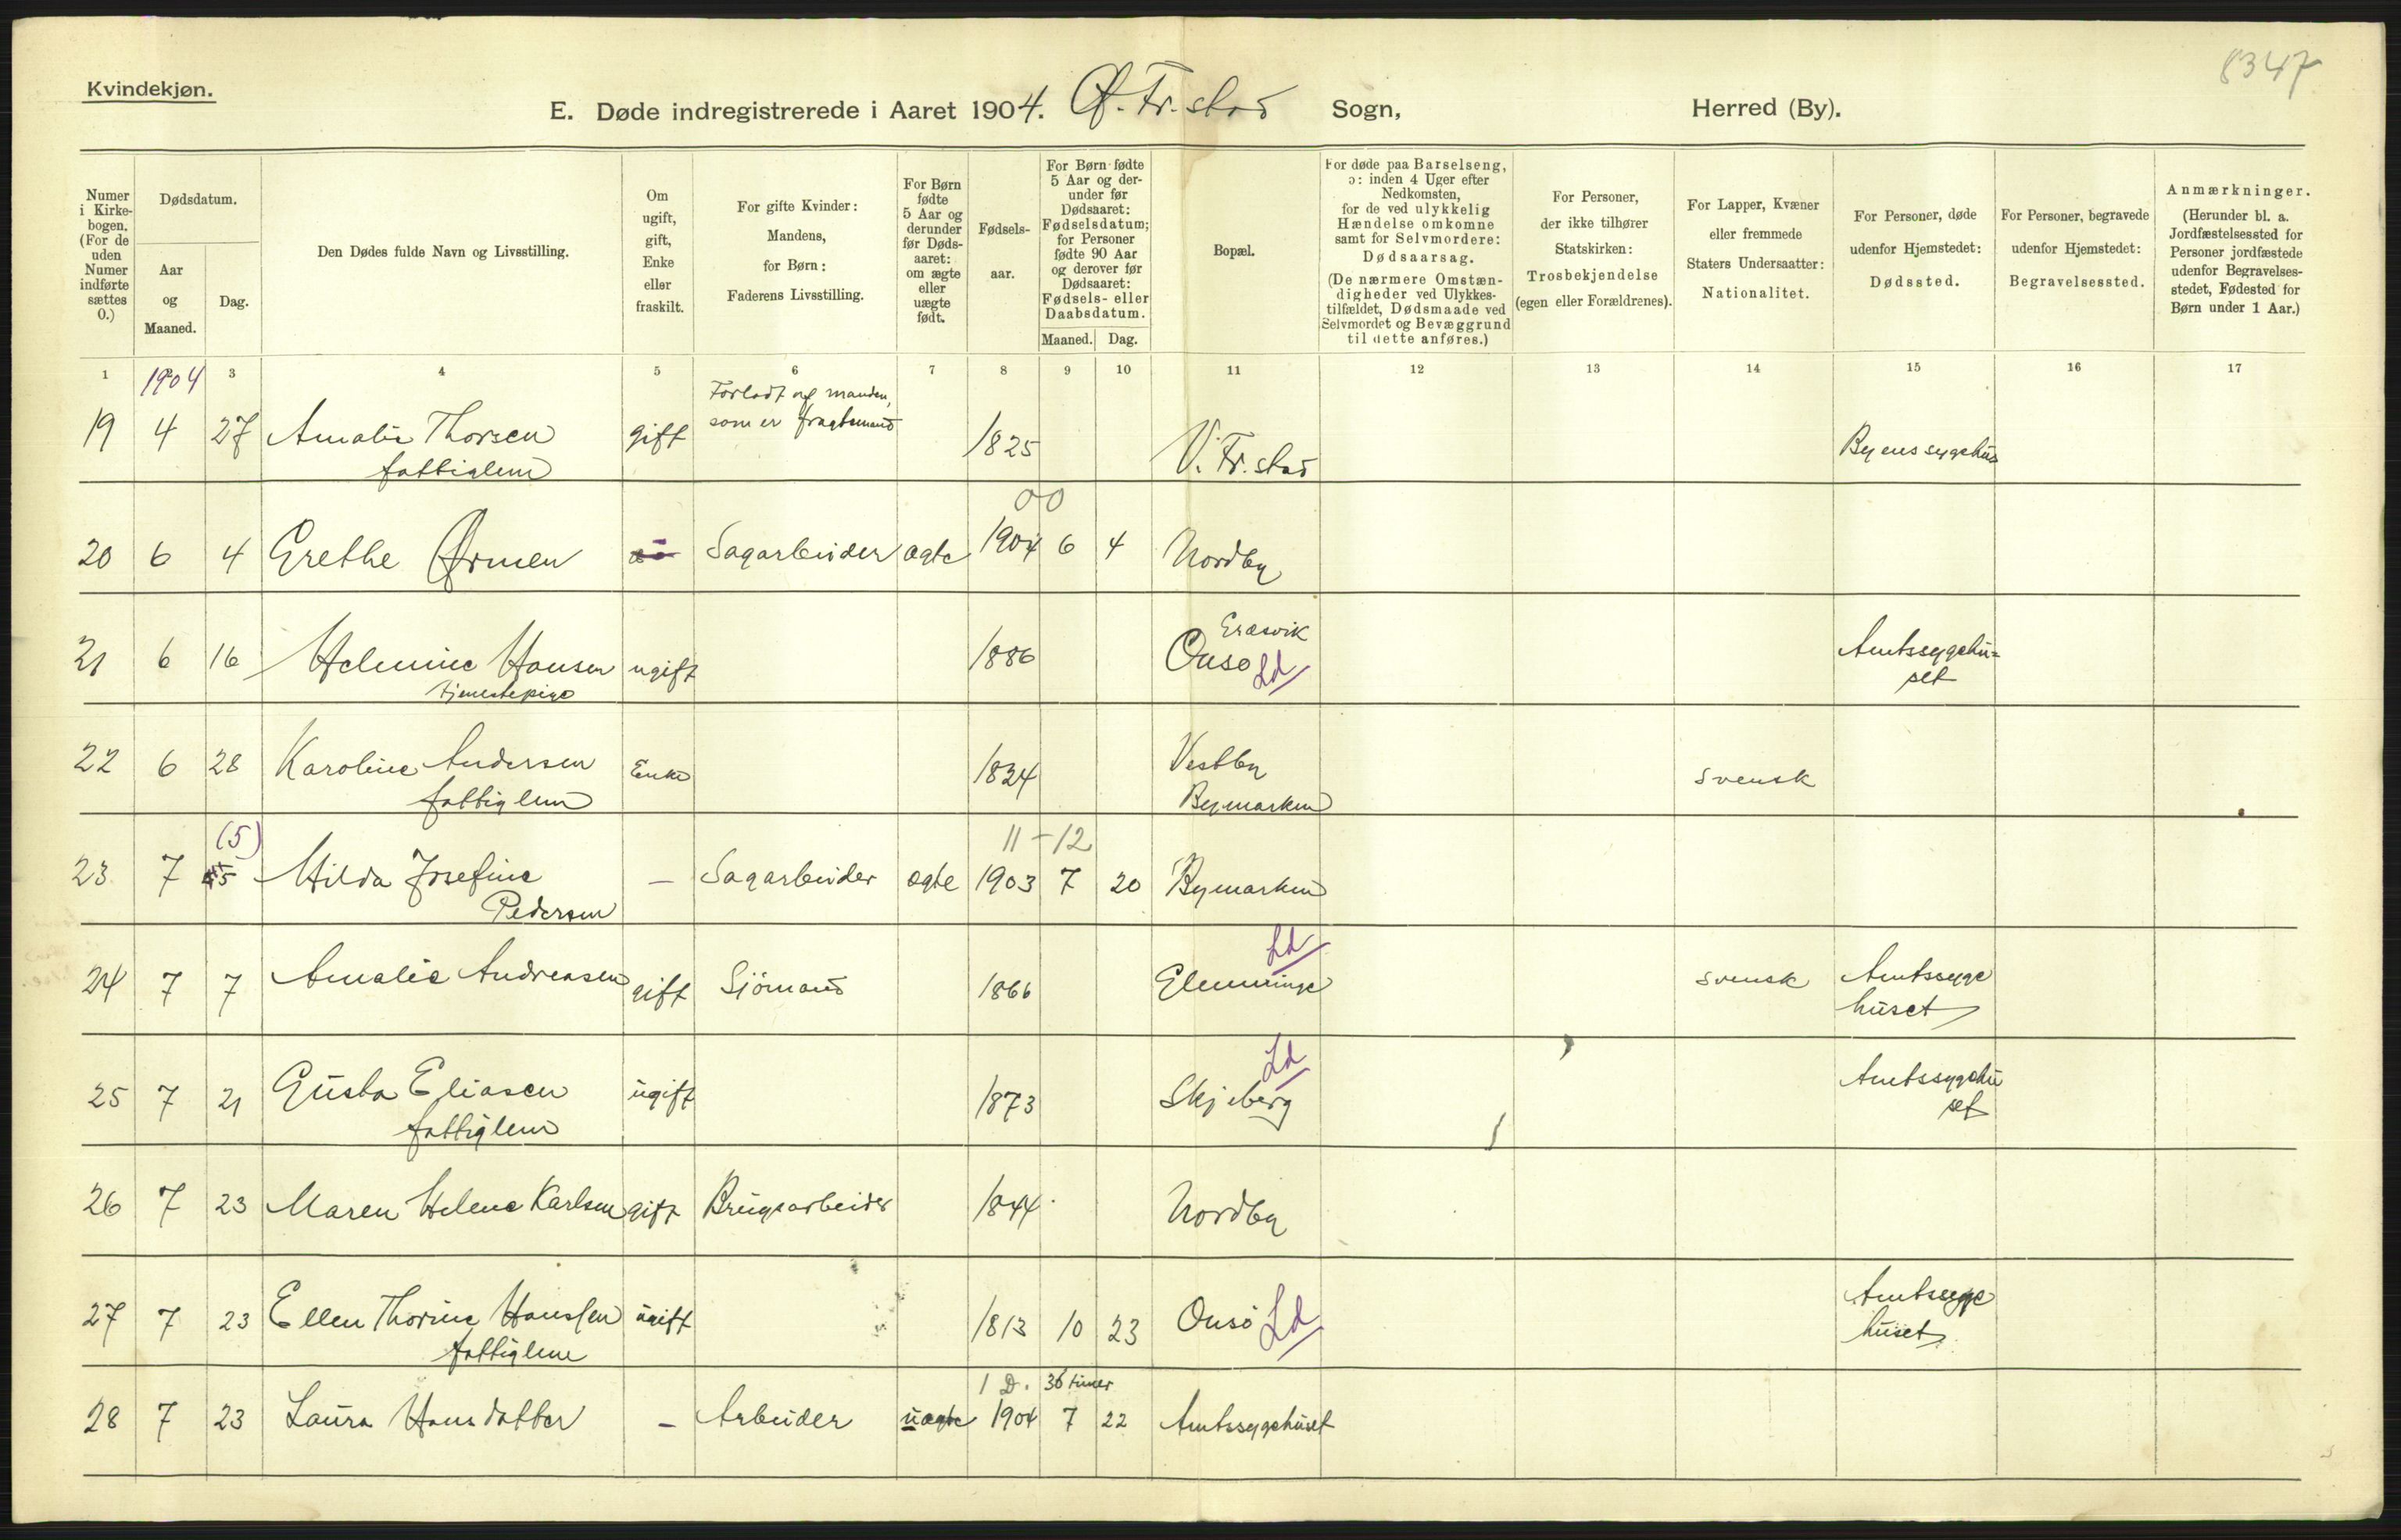 8347
Kvindekjøn.
E. Døde indregistrerede i Aaret 1904. Ø. Fr.stad Sogn, Herred (By).
Numer i Kirkebogen. (For de uden Numer indførte sættes 0.)
Dødsdatum.
Aar og Maaned.
Dag.
Den Dødes fulde Navn og Livsstilling.
Om ugift, gift, Enke eller fraskilt.
For gifte Kvinder: Mandens, for Børn: Faderens Livsstilling.
For Børn fødte 5 Aar og derunder før Dødsaaret: om ægte eller uægte født.
Fødselsaar.
For Børn fødte 5 Aar og derunder før Dødsaaret: Fødselsdatum; for Personer fødte 90 Aar og derover før Dødsaaret: Fødsels- eller Daabsdatum.
Maaned. Dag.
Bopæl.
For døde paa Barselseng, ɔ: inden 4 Uger efter Nedkomsten, for de ved ulykkelig Hændelse omkomne samt for Selvmordere: Dødsaarsag.
(De nærmere Omstændigheder ved Ulykkestilfældet, Dødsmaade ved Selvmordet og Bevæggrund til dette anføres.)
For Personer, der ikke tilhører Statskirken: Trosbekjendelse (egen eller Forældrenes).
For Lapper, Kvæner eller fremmede Staters Undersaatter: Nationalitet.
For Personer, døde udenfor Hjemstedet: Dødssted.
For Personer, begravede udenfor Hjemstedet: Begravelsessted.
Anmærkninger. (Herunder bl. a. Jordfæstelsessted for Personer jordfæstede udenfor Begravelsesstedet, Fødested for Børn under 1 Aar.)
1 2 3 4 5 6 7 8 9 10 11 12 13 14 15 16 17
1904
Forladt af manden,
som er fragtmand
19 4 27 Amalie Thorsen gift 1825 V. Fr.stad Byens sygehus
fattiglem
00
20 6 4 Grethe Ørmen Sagarbeider ægte 1904 6 4 Nordby
Græsvik
21 6 16 Helmine Hansen ugift 1886 Onsø Ld Amtssygehu=
tjenestepige set
22 6 28 Karoline Andersen Enke 1824 Vestby svensk
fattiglem Bymarken
(5) 11-12
23 7 5 Hilda Josefine — Sagarbeider ægte 1903 7 20 Bymarken
Pedersen
Ld
24 7 7 Amalie Andreasen gift Sjömand 1866 Glemminge svensk Amtssyge
huset
Ld
25 7 21 Gusta Eliasen ugift 1873 Skjeberg Amtssygehu
fattiglem set
26 7 23 Maren Helene Karlsen gift Brugsarbeider 1844 Nordby
27 7 23 Ellen Thorine Hanssen ugift 1813 10 23 Onsö Ld Amtssyge
fattiglem huset
1 D. 36 timer
28 7 23 Laura Hansdatter — Arbeider uægte 1904 7 22 Amtssygehuset